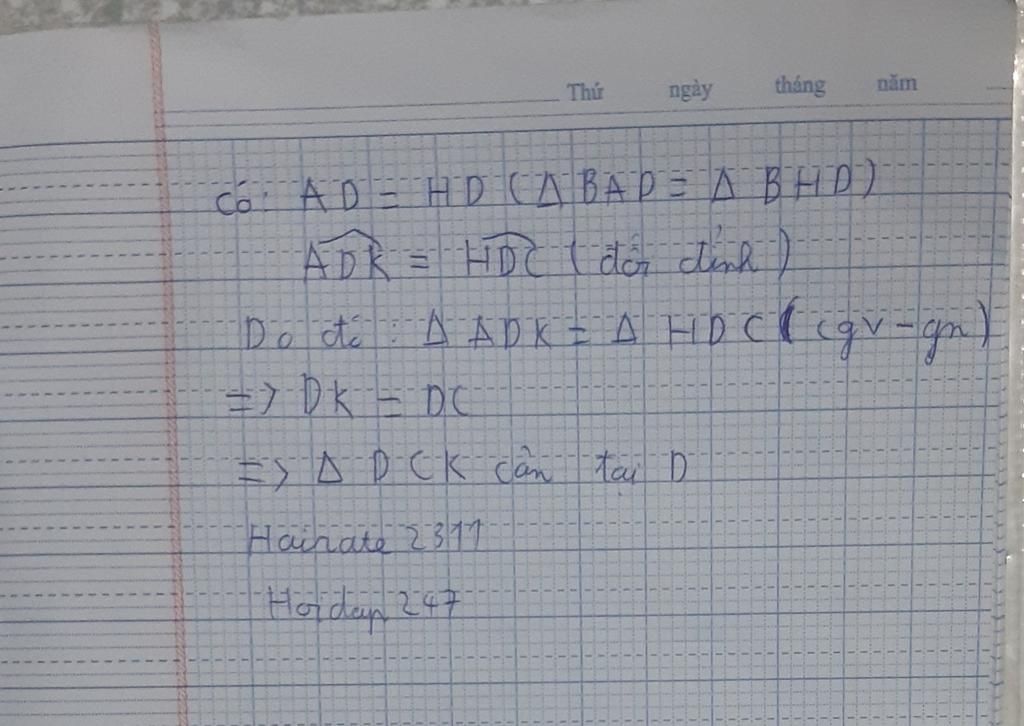 Thứ ngày tháng năm
Có: AD = HD (Δ BAD = Δ BHD)
ADK = HDC (đối đỉnh)
Do đó: Δ ADK = Δ HDC (cgv - gn)
=> DK = DC
=> Δ DCK cân tại D
Hainate 2311
Hoidap 247